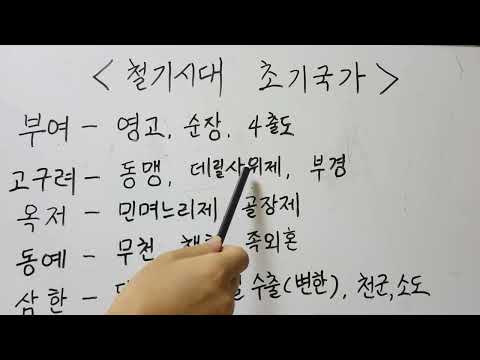 < 철기시대 초기국가 >
부여 - 영고, 순장. 4출도
고구려 - 동맹, 데릴사위제, 부경
옥저 - 민며느리제 골장제
동예 - 무천, 족외혼
삼한 - 수출(변한), 천군, 소도